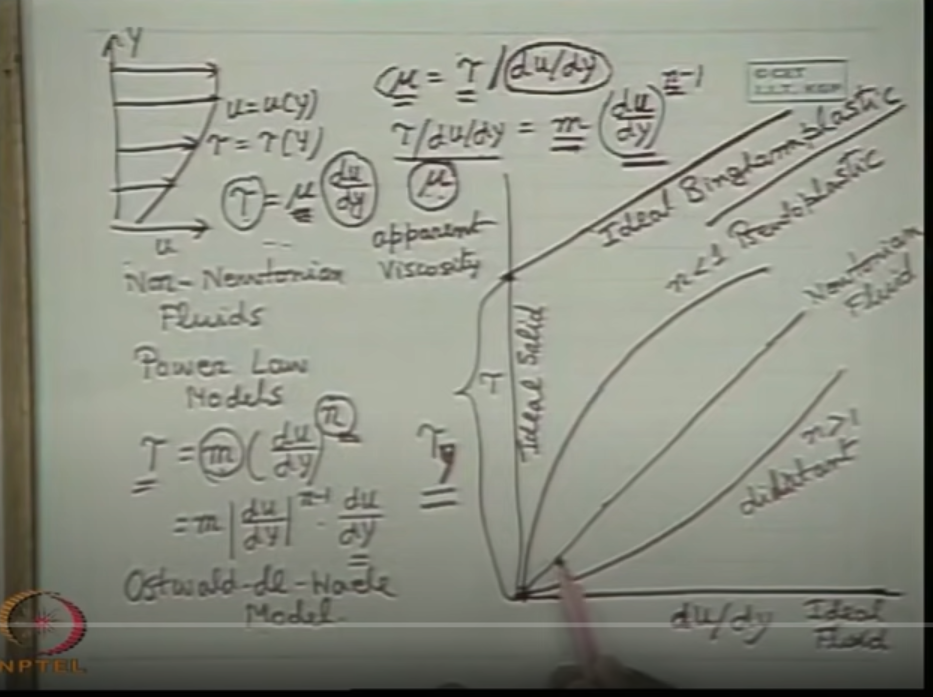 Y
u = u(y)
τ = τ(y)
τ = μ (du/dy)
u
Non-Newtonian
Fluids
Power Law
Models
τ = m (du/dy)^n
= m |du/dy|^n-1 · du/dy
Ostwald-de-Waele
Model
μ = τ / (du/dy)
τ/du/dy = m (du/dy)^n-1
μ
apparent
Viscosity
τy
τ
Ideal Solid
Ideal Bingham plastic
n<1 Pseudoplastic
Newtonian
Fluid
n>1
dilatant
du/dy
Ideal
Fluid
© CET
I.I.T. KGP
NPTEL